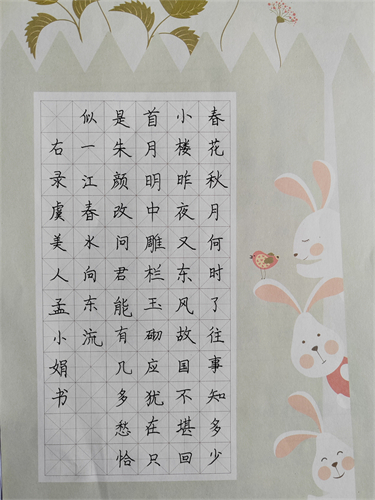 春花秋月何时了往事知多少
小楼昨夜又东风故国不堪回
首月明中雕栏玉砌应犹在只
是朱颜改问君能有几多愁恰
似一江春水向东流
右录虞美人孟小娟书